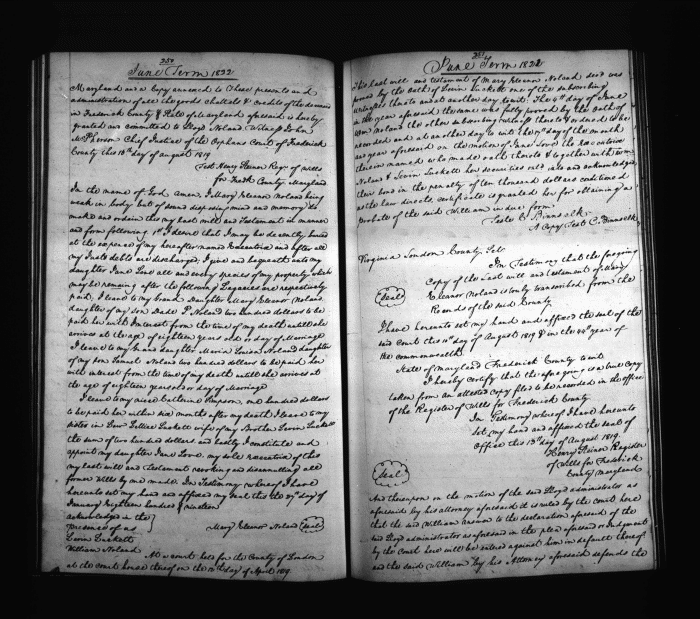 250
June Term 1822
Maryland and a copy annexed to these presents and
administration of all the goods Chattels & credits of the deceased
in Frederick County & State of Maryland aforesaid is hereby
granted and committed to Lloyd Noland Witness John
McPherson Chief Justice of the Orphans Court of Frederick
County this 13th day of august 1819
Test Henry Steiner Regr of wills
for Fredk County, Maryland
In the name of God amen, I Mary Eleanor Noland being
weak in body but of sound disposing mind and memory do
make and ordain this my last will and Testament in manner
and form following 1st I desire that I may be decently buried
at the expense of my hereafter named Executrix and after all
my Just debts are discharged, I give and bequeath unto my
daughter Jane Love all and every species of my property which
may be remaining after the following Legacies are respectively
paid. I leave to my Grand Daughter Mary Eleanor Noland
daughter of my son Dade P. Noland two hundred dollars to be
paid her with Interest from the time of my death untill she
arrives at the age of eighteen years old or day of Marriage
I leave to my grand daughter Maria Louisa Noland daughter
of my son Samuel Noland two hundred dollars to be paid her
with interest from the time of my death untill she arrives at
the age of eighteen years or day of Marriage
I leave to my niece Catherine Simpson one hundred dollars
to be paid her within six months after my death I leave to my
sister in Law Luckett wife of my Brother Levin Luckett
the sum of two hundred dollars and lastly I constitute and
appoint my daughter Jane Love, my sole executrix of this
my last will and Testament revoking and disannulling all
former wills by me made. In Testimony whereof I have
hereunto set my hand and affixed my seal this the day of
January Eighteen hundred & nineteen
acknowledged in the
presence of us
Mary Eleanor Noland Seal
Levin Luckett
William Noland At a court held for the County of Loudon
at the court house thereof on the 12th day of April 1819.
251
June Term 1822
This last will and testament of Mary Eleanor Noland decd was
proved by the oath of Levin Luckett one of the subscribing
witnesses thereto and at another day to wit: The 14th day of June
in the year aforesaid the same was fully proved by the oath of
Wm Noland the other subscribing witness thereto & ordered to be
recorded and at another day to wit the day of the month
and year aforesaid on the motion of Jane Love the Executrix
therein named who made oath thereto & together with
Noland & Levin Luckett her securities entered into and acknowledged
their bond in the penalty of ten thousand dollars conditioned
as the law directs, certificate is granted her for obtaining a
probate of the said William in due form
Teste C. Binns Clk.
A Copy Test C. Binns Clk
Virginia Loudon County Sct
In Testimony that the foregoing
copy of the Last will and testament of Mary
Eleanor Noland is truly transcribed from the
Records of the said County
Seal
I have hereunto set my hand and affixed the seal of the
said Court this 10th day of August 1819 & in the 44th year of
the commonwealth.
State of Maryland Frederick County to wit
I hereby certify that the aforegoing is a true Copy
taken from an attested copy filed to be recorded in the office
of the Register of Wills for Frederick County.
In Testimony whereof I have hereunto
set my hand and affixed the seal of
Office this 13th day of august 1819.
Henry Steiner Register
of Wills for Frederick
County Maryland
Seal
And thereupon on the motion of the said Lloyd administrator as
aforesaid by his attorney aforesaid it is ruled by the court here
that the said William answer to the declaration aforesaid of the
said Lloyd administrator as aforesaid in the plea aforesaid or Judgment
by the Court here will be entered against him in default thereof
and the said William by his Attorney aforesaid defends the